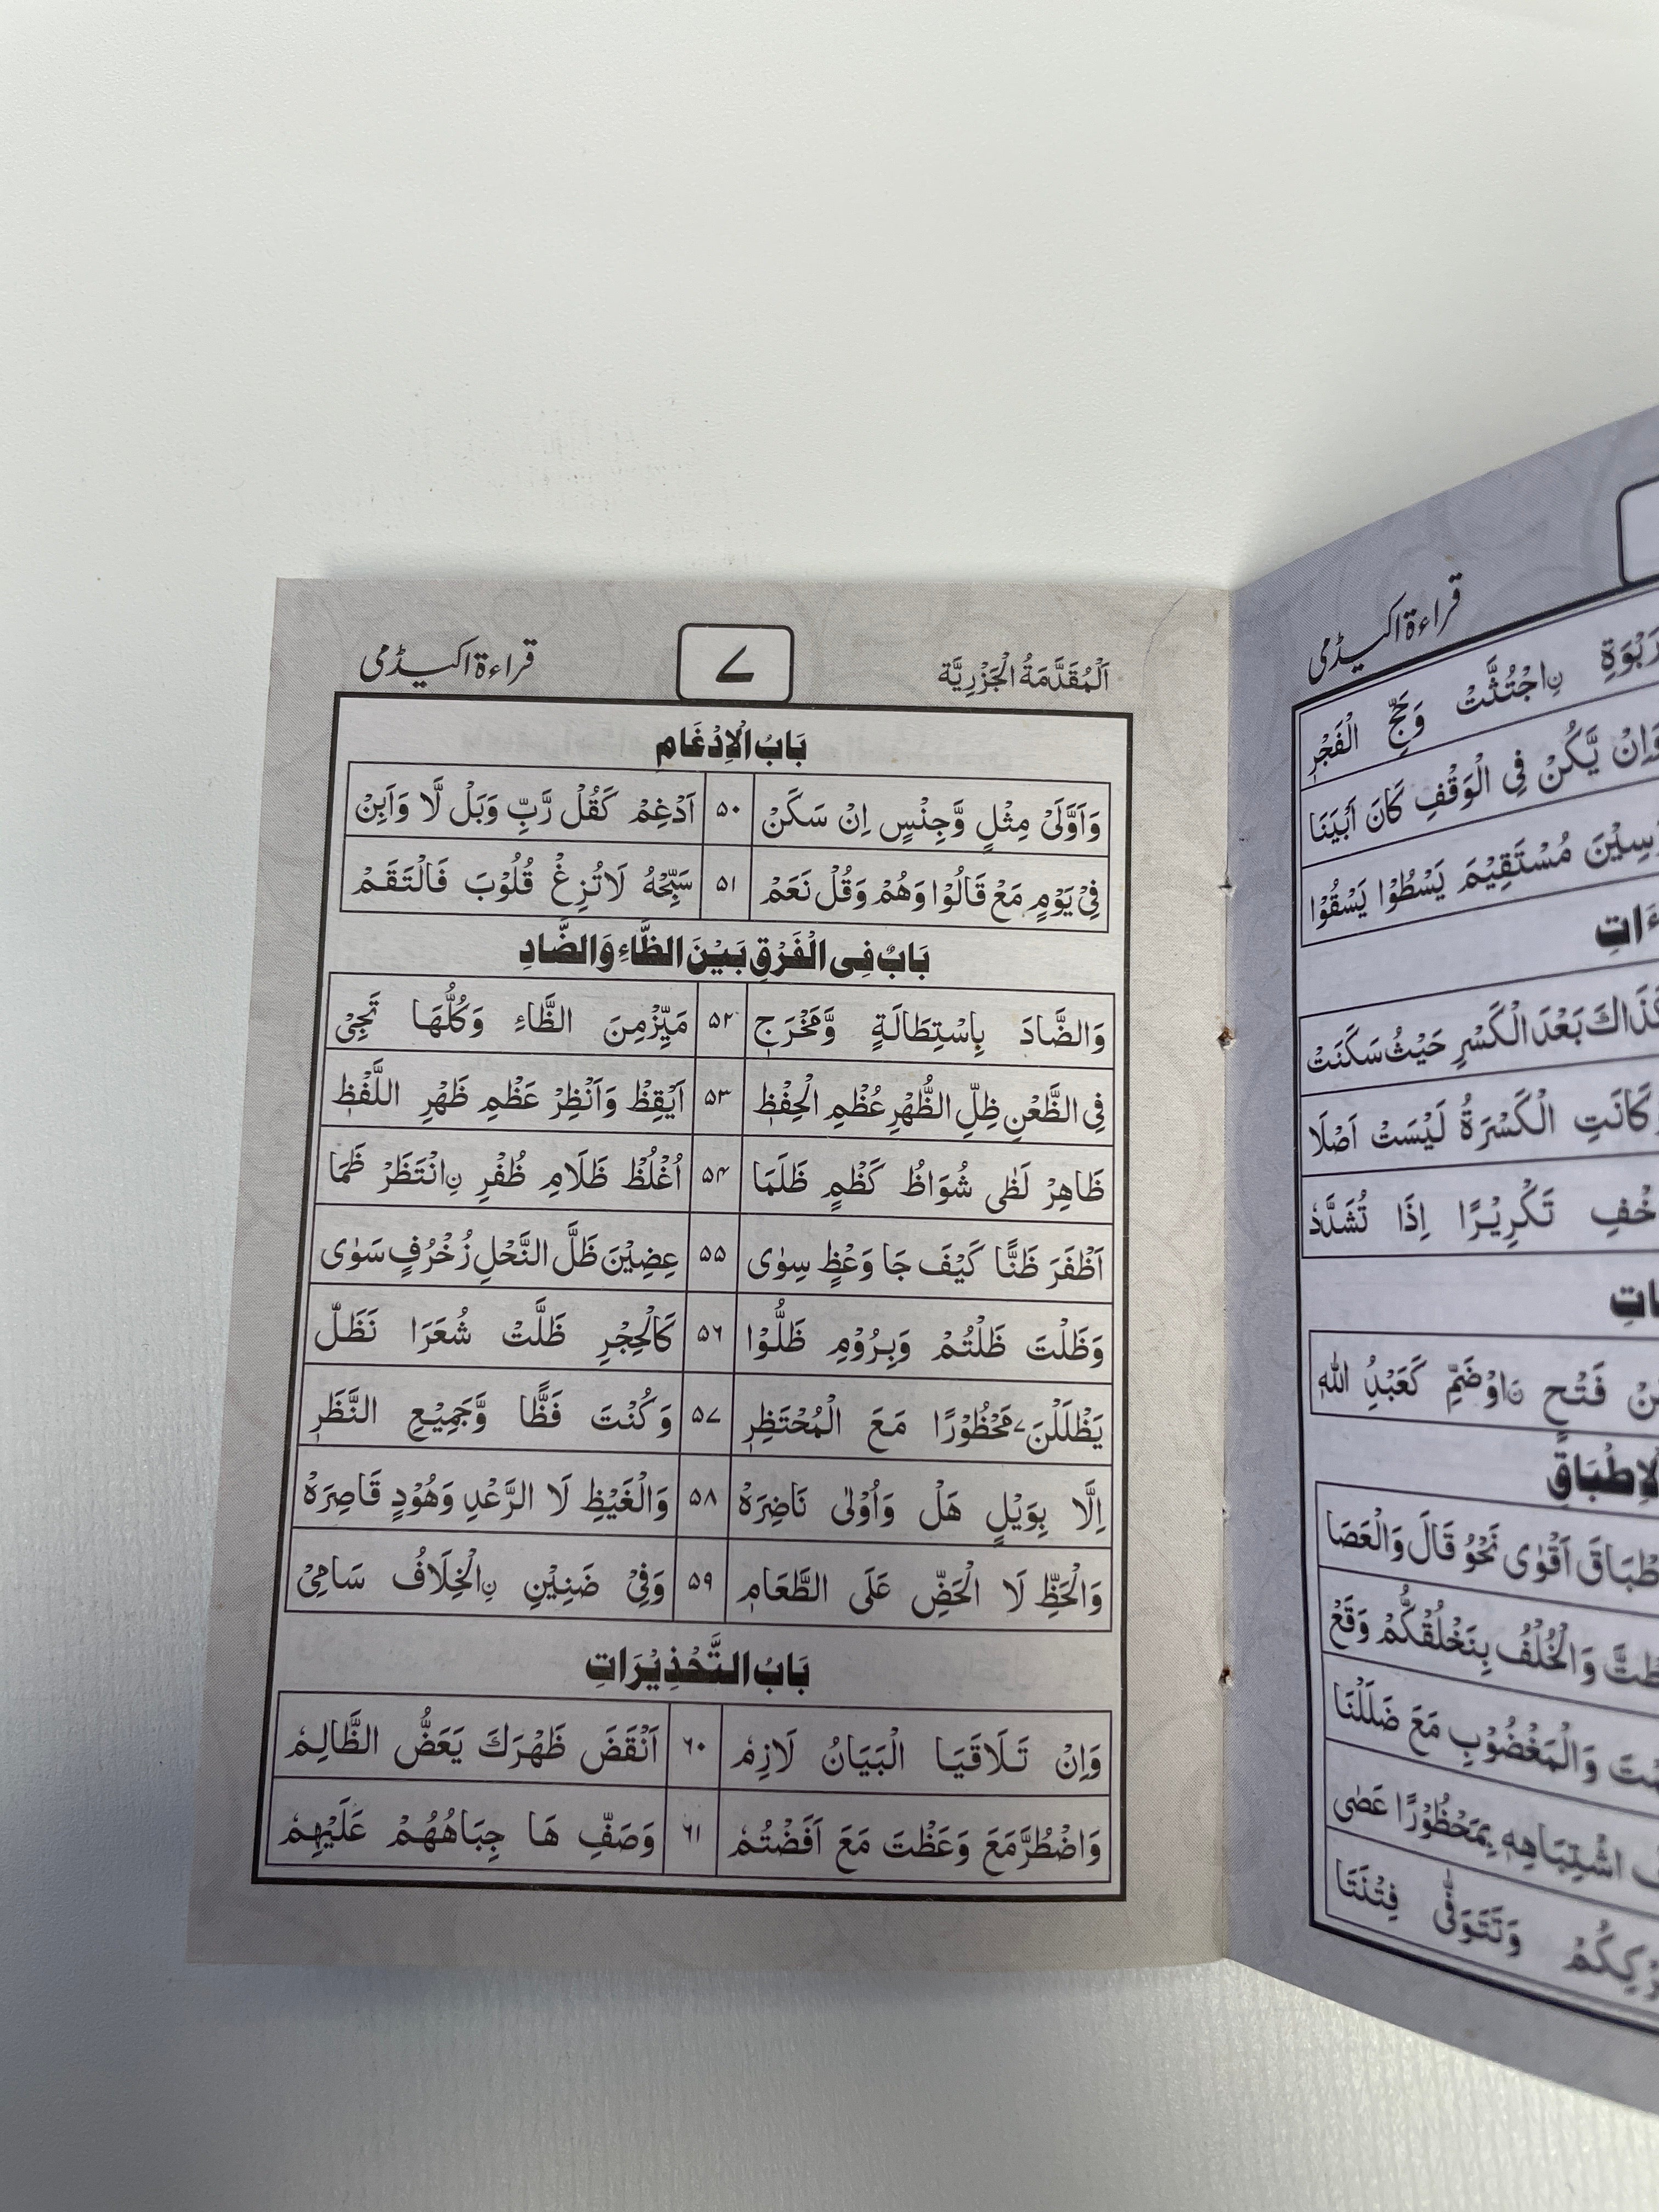 اَلْمُقَدَّمَةُ الْجَزْرِيَّة ٧ قراءة اکیڈمی
بَابُ الْاِدْغَامِ
وَاَوَّلَیْ مِثْلٍ وَّجِنْسٍ اِنْ سَكَنْ ۵۰ اَدْغِمْ كَقُلْ رَّبِّ وَبَلْ لَّا وَاَبِنْ
فِیْ يَوْمٍ مَعْ قَالُوْا وَهُمْ وَقُلْ نَعَمْ ۵۱ سَبِّحْهُ لَاتُزِغْ قُلُوْبَ فَالْتَقَمْ
بَابٌ فِی الْفَرْقِ بَيْنَ الظَّاءِ وَالضَّادِ
وَالضَّادَ بِاِسْتِطَالَةٍ وَّمَخْرَجٖ ۵۲ مَيِّزْمِنَ الظَّاءِ وَكُلُّهَا تَجِیْ
فِی الظَّعْنِ ظِلِّ الظُّهْرِ عُظْمِ الْحِفْظِ ۵۳ اَيْقِظْ وَاَنْظِرْ عَظْمِ ظَهْرِ اللَّفْظِ
ظَاهِرْ لَظٰی شُوَاظُ كَظْمٍ ظَلَمَا ۵۴ اُغْلُظْ ظَلَامِ ظُفْرِ نِ انْتَظَرْ ظَمَا
اَظْفَرَ ظَنًّا كَيْفَ جَا وَعْظٍ سِوٰی ۵۵ عِضِيْنَ ظَلَّ النَّحْلِ زُخْرُفٍ سَوٰی
وَظَلْتَ ظَلْتُمْ وَبِرُوْمِ ظَلُّوْا ۵۶ كَالْحِجْرِ ظَلَّتْ شُعَرَا نَظَلُّ
يَظْلَلْنَ مَحْظُوْرًا مَعَ الْمُحْتَظِرِ ۵۷ وَكُنْتَ فَظًّا وَّجَمِيْعِ النَّظَرِ
اِلَّا بِوَيْلٍ هَلْ وَاُوْلٰی نَاضِرَهْ ۵۸ وَالْغَيْظِ لَا الرَّعْدِ وَهُوْدٍ قَاصِرَهْ
وَالْحَظِّ لَا الْحَضِّ عَلَی الطَّعَامِ ۵۹ وَفِیْ ضَنِيْنِ نِ الْخِلَافُ سَامِیْ
بَابُ التَّحْذِيْرَاتِ
وَاِنْ تَلَاقَيَا الْبَيَانُ لَازِمٗ ۶۰ اَنْقَضَ ظَهْرَكَ يَعَضُّ الظَّالِمٗ
وَاضْطُرَّمَعَ وَعَظْتَ مَعَ اَفَضْتُمٗ ۶۱ وَصَفِّ هَا جِبَاهُهُمْ عَلَيْهِمٗ
قراءة اکیڈمی
رَبْوَةِ نِ اجْتُثَّتْ وَحَجِّ الْفَجْرِ
وَاِنْ يَّكُنْ فِی الْوَقْفِ كَانَ اَبْيَنَا
مُسْتَقِيْمَ يَسْطُوْا يَسْقُوْا
بَعْدَ الْكَسْرِ حَيْثُ سَكَنَتْ
كَانَتِ الْكَسْرَةُ لَيْسَتْ اَصْلَا
تَكْرِيْرًا اِذَا تُشَدَّدٗ
فَتْحٍ نَ اوْ ضَمٍّ كَعَبْدُ اللّٰهِ
اَقْوٰی نَحْوُ قَالَ وَالْعَصَا
وَالْخُلْفُ بِنَخْلُقْكُّمْ وَقَعْ
وَالْمَغْضُوْبِ مَعَ ضَلَلْنَا
اشْتِبَاهِهٖ بِمَحْظُوْرًا عَصٰی
وَتَتَوَفّٰی فِتْنَتَا